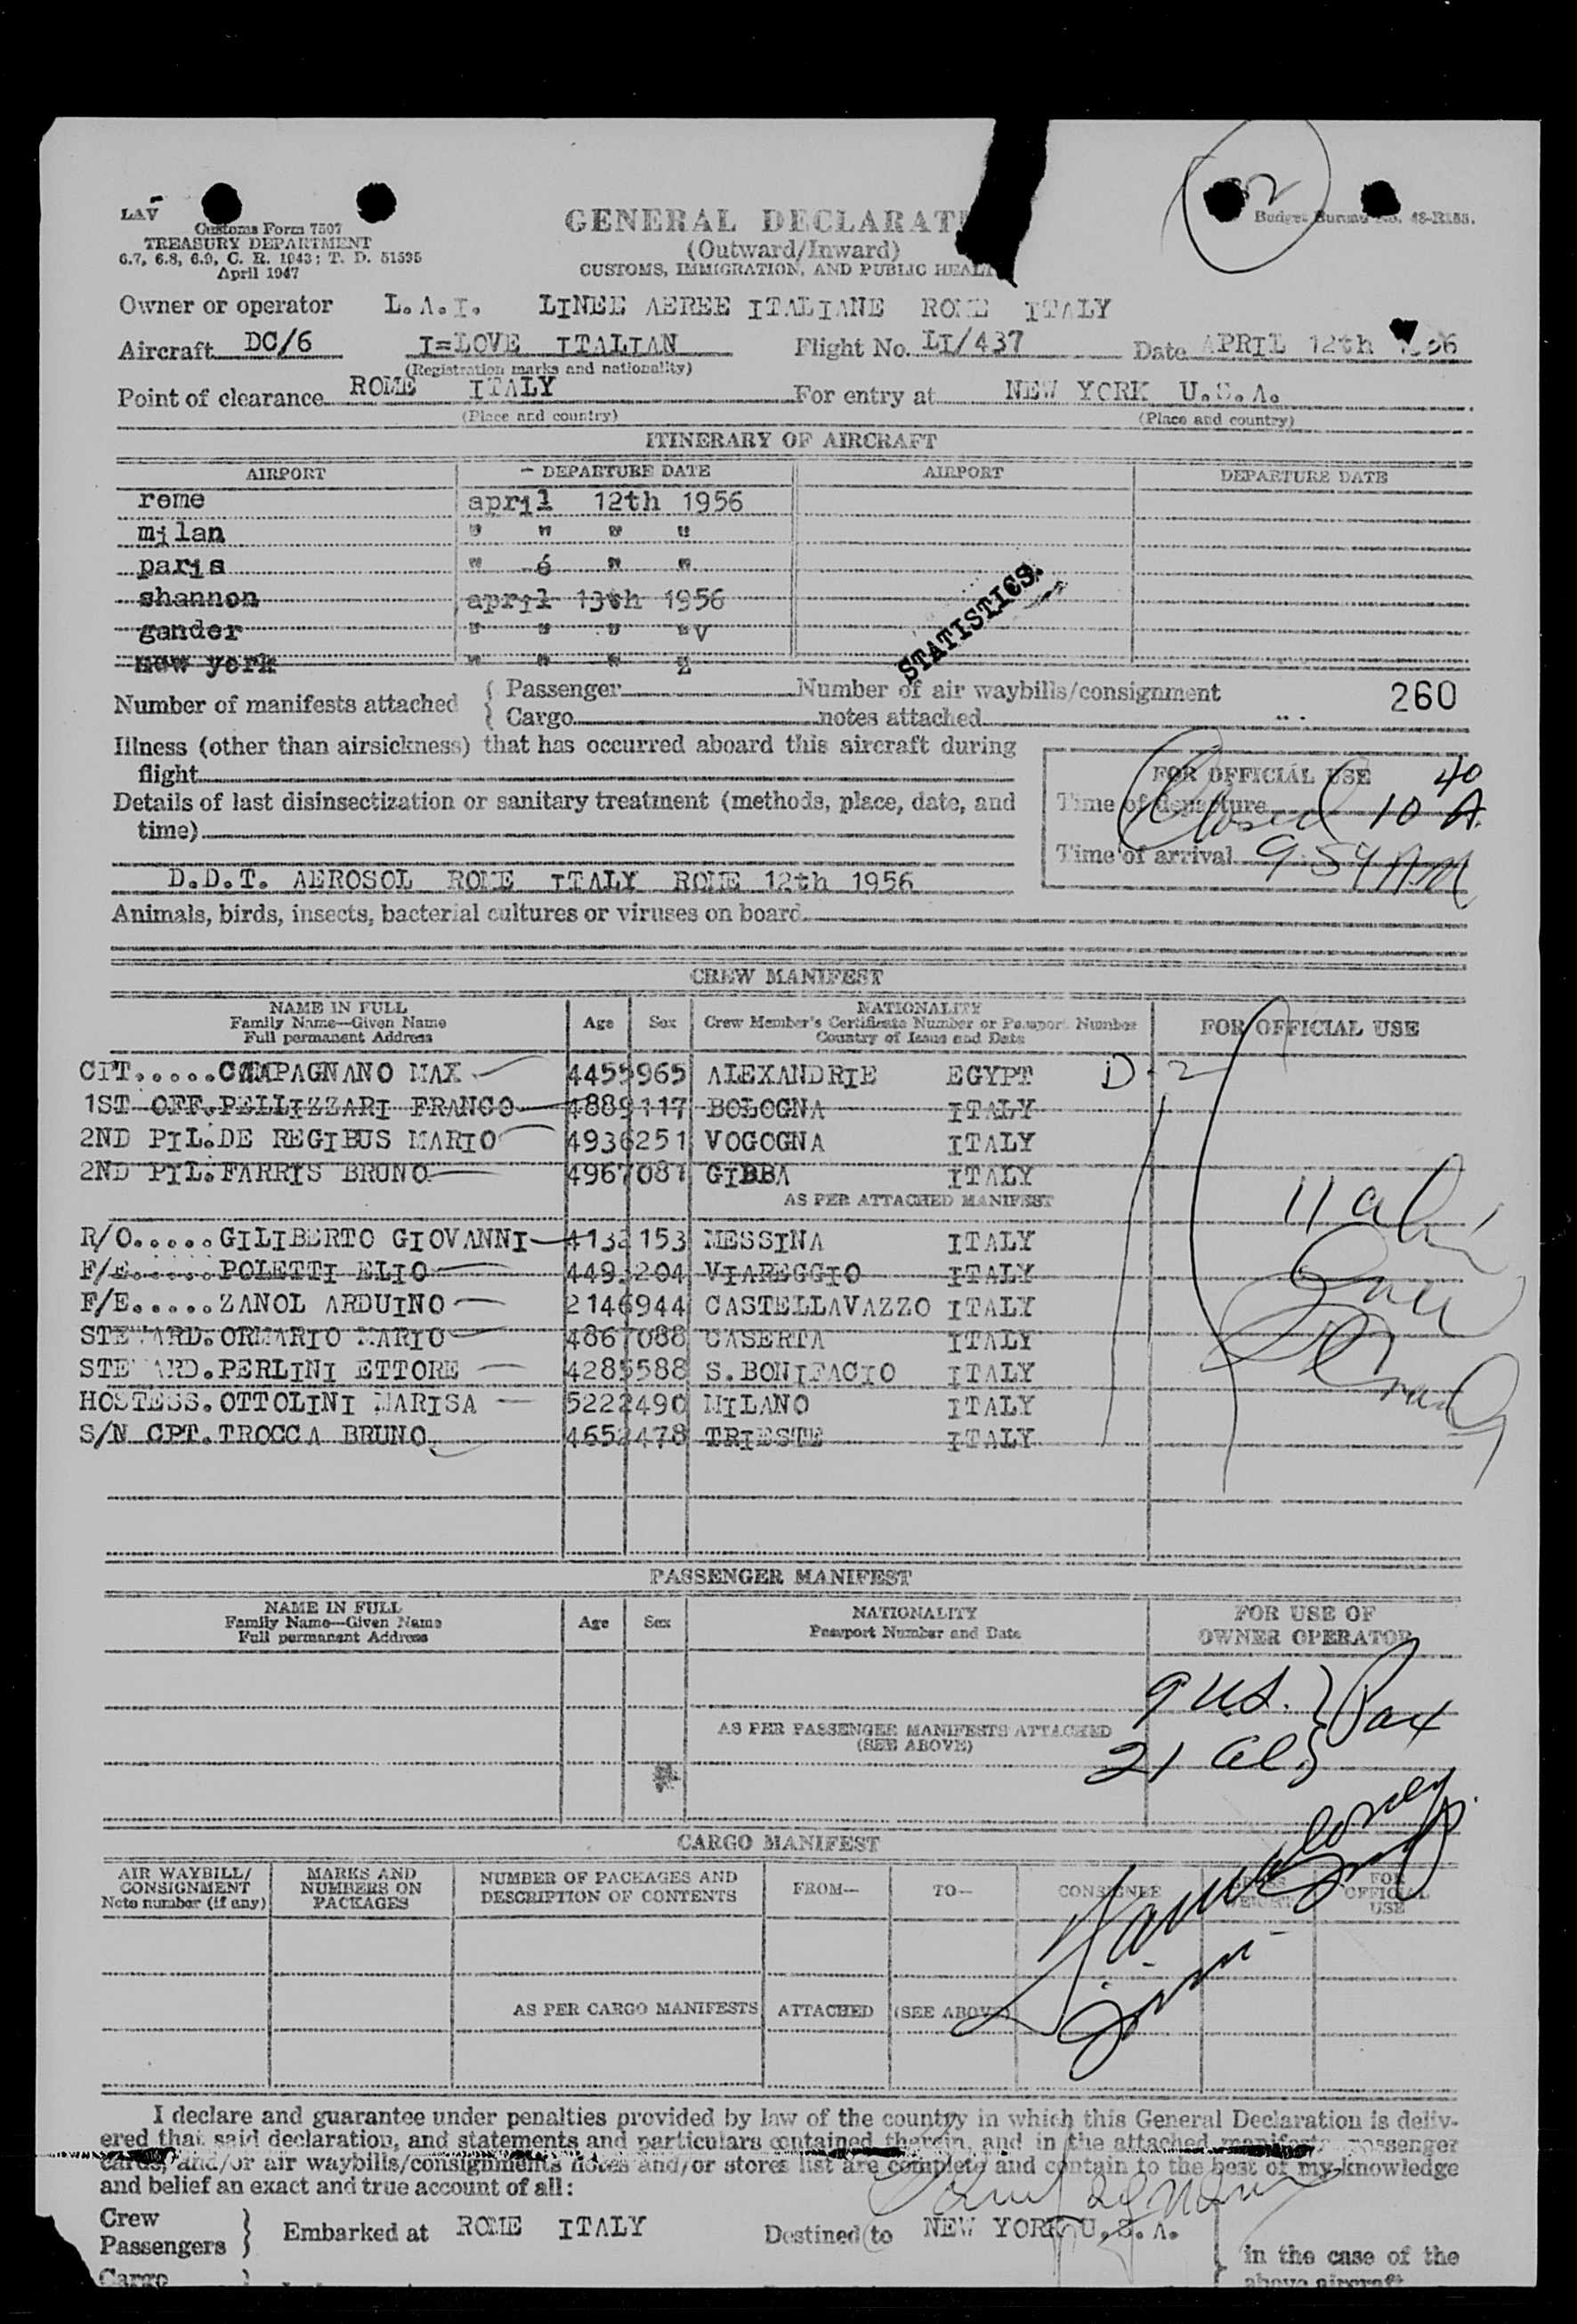 LAV
Customs Form 7507
TREASURY DEPARTMENT
6.7, 6.8, 6.9, C. R. 1943; T. D. 51595
April 1947
GENERAL DECLARAT
(Outward/Inward)
CUSTOMS, IMMIGRATION, AND PUBLIC HEALT
Budget Bureau No. 48-R155.
Owner or operator L.A.I. LINEE AEREE ITALIANE ROME ITALY
Aircraft DC/6 I=LOVE ITALIAN Flight No. LI/437 Date APRIL 12th 1956
(Registration marks and nationality)
Point of clearance ROME ITALY For entry at NEW YORK U.S.A.
(Place and country) (Place and country)
ITINERARY OF AIRCRAFT
AIRPORT DEPARTURE DATE AIRPORT DEPARTURE DATE
rome april 12th 1956
milan " " " "
paris " 6 " "
shannon april 13th 1956
gander " " " "V
new york " " " Z
STATISTICS.
Number of manifests attached { Passenger Number of air waybills/consignment 260
Cargo notes attached
Illness (other than airsickness) that has occurred aboard this aircraft during
flight
Details of last disinsectization or sanitary treatment (methods, place, date, and
time)
FOR OFFICIAL USE
Time of departure Closed 10 40 A.
Time of arrival 9 54 AM
D.D.T. AEROSOL ROME ITALY ROME 12th 1956
Animals, birds, insects, bacterial cultures or viruses on board
CREW MANIFEST
NAME IN FULL
Family Name—Given Name
Full permanent Address
Age Sex
NATIONALITY
Crew Member's Certificate Number or Passport Number
Country of Issue and Date
FOR OFFICIAL USE
CPT.....CAMPAGNANO MAX 4455965 ALEXANDRIE EGYPT D-2
1ST OFF.PELLIZZARI FRANCO 4889117 BOLOGNA ITALY
2ND PIL.DE REGIBUS MARIO 4936251 VOGOGNA ITALY
2ND PIL.FARRIS BRUNO 4967081 GIBBA ITALY
AS PER ATTACHED MANIFEST
R/O.....GILIBERTO GIOVANNI 4132153 MESSINA ITALY
F/E.....POLETTI ELIO 4493204 VIAREGGIO ITALY
F/E.....ZANOL ARDUINO 2146944 CASTELLAVAZZO ITALY
STEWARD.ORMARIO MARIO 4867088 CASERTA ITALY
STEWARD.PERLINI ETTORE 4285588 S.BONIFACIO ITALY
HOSTESS.OTTOLINI MARISA 5222490 MILANO ITALY
S/N CPT.TROCCA BRUNO 4652478 TRIESTE ITALY
PASSENGER MANIFEST
NAME IN FULL
Family Name—Given Name
Full permanent Address
Age Sex
NATIONALITY
Passport Number and Date
FOR USE OF
OWNER OPERATOR
9 US. } Pax
AS PER PASSENGER MANIFESTS ATTACHED
(SEE ABOVE)
21 al.
CARGO MANIFEST
AIR WAYBILL/
CONSIGNMENT
Note number (if any)
MARKS AND
NUMBERS ON
PACKAGES
NUMBER OF PACKAGES AND
DESCRIPTION OF CONTENTS
FROM— TO— CONSIGNEE
GROSS
WEIGHT
FOR
OFFICIAL
USE
AS PER CARGO MANIFESTS ATTACHED (SEE ABOVE)
I declare and guarantee under penalties provided by law of the country in which this General Declaration is deliv-
ered that said declaration, and statements and particulars contained therein, and in the attached manifests passenger
cargo, and/or air waybills/consignments notes and/or stores list are complete and contain to the best of my knowledge
and belief an exact and true account of all:
Crew
Passengers } Embarked at ROME ITALY Destined to NEW YORK U.S.A.
in the case of the
Cargo
above aircraft